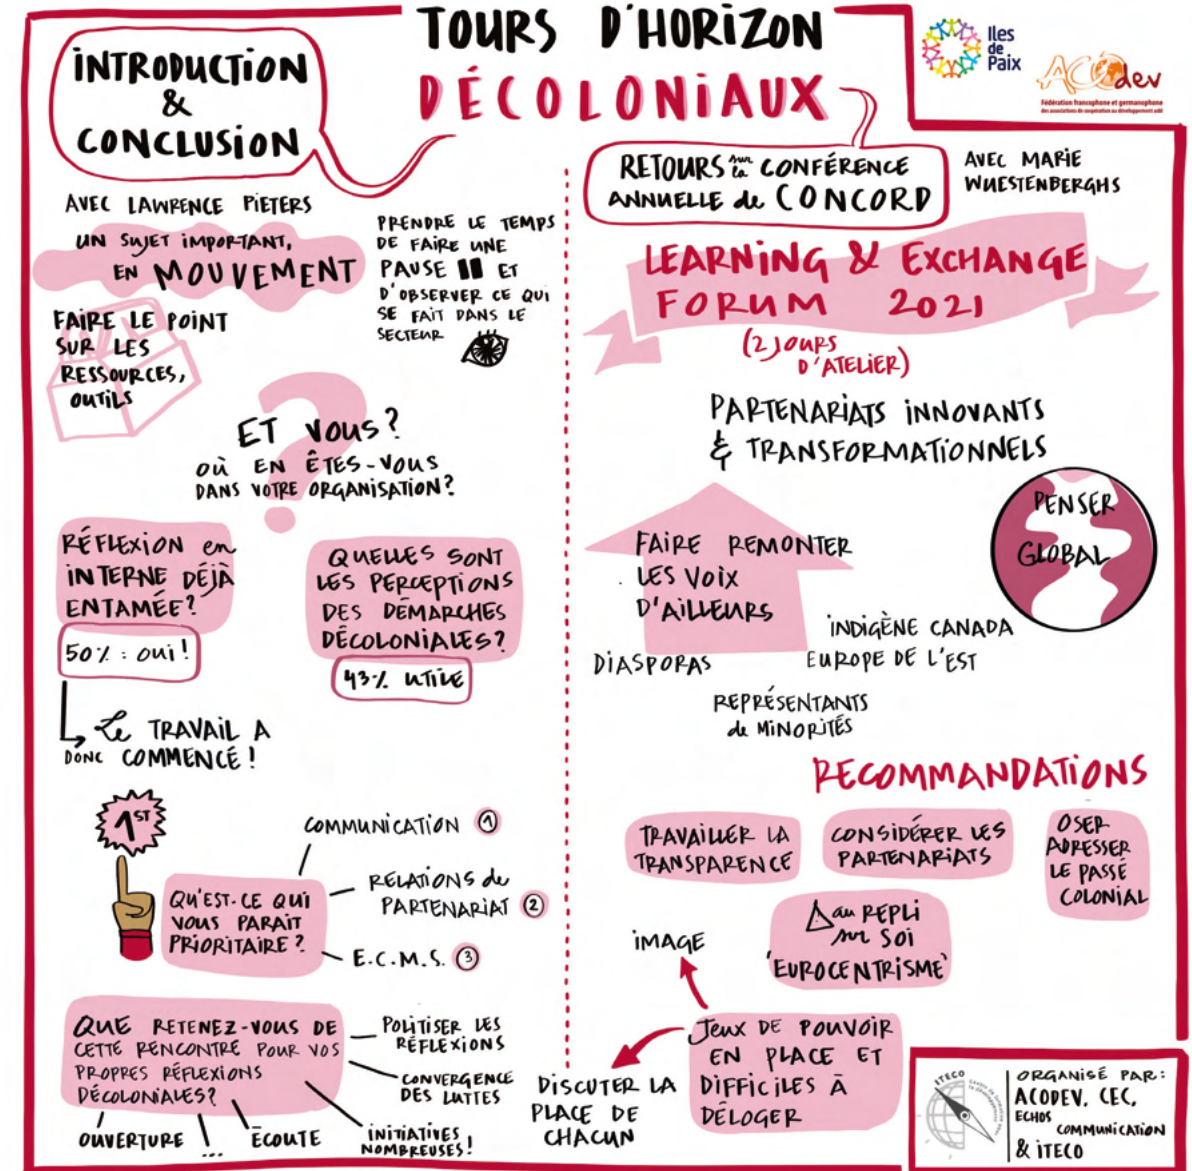 TOURS D'HORIZON
DÉCOLONIAUX
Iles
de
Paix
ACOdev
Fédération francophone et germanophone
des associations de coopération au développement asbl
INTRODUCTION
&
CONCLUSION
AVEC LAWRENCE PIETERS
UN SUJET IMPORTANT,
EN MOUVEMENT
PRENDRE LE TEMPS
DE FAIRE UNE
PAUSE ET
D'OBSERVER CE QUI
SE FAIT DANS LE
SECTEUR
FAIRE LE POINT
SUR LES
RESSOURCES,
OUTILS
?
ET VOUS?
OÙ EN ÊTES-VOUS
DANS VOTRE ORGANISATION?
RÉFLEXION en
INTERNE DÉJÀ
ENTAMÉE?
50% : OUI!
QUELLES SONT
LES PERCEPTIONS
DES DÉMARCHES
DÉCOLONIALES?
43% UTILE
Le TRAVAIL A
DONC COMMENCÉ!
1ST
QU'EST-CE QUI
VOUS PARAIT
PRIORITAIRE?
COMMUNICATION 1
RELATIONS de
PARTENARIAT 2
E.C.M.S. 3
QUE RETENEZ-VOUS DE
CETTE RENCONTRE POUR VOS
PROPRES RÉFLEXIONS
DÉCOLONIALES?
POLITISER LES
RÉFLEXIONS
CONVERGENCE
DES LUTTES
INITIATIVES
NOMBREUSES!
ÉCOUTE
...
OUVERTURE
RETOURS sur la CONFÉRENCE
ANNUELLE de CONCORD
AVEC MARIE
WUESTENBERGHS
LEARNING & EXCHANGE
FORUM 2021
(2 JOURS
D'ATELIER)
PARTENARIATS INNOVANTS
& TRANSFORMATIONNELS
PENSER
GLOBAL
FAIRE REMONTER
LES VOIX
D'AILLEURS
DIASPORAS
INDIGÈNE CANADA
EUROPE DE L'EST
REPRÉSENTANTS
de MINORITÉS
RECOMMANDATIONS
TRAVAILLER LA
TRANSPARENCE
CONSIDÉRER LES
PARTENARIATS
OSER
ADRESSER
LE PASSÉ
COLONIAL
au REPLI
sur SOI
'EUROCENTRISME'
IMAGE
JEUX DE POUVOIR
EN PLACE ET
DIFFICILES À
DÉLOGER
DISCUTER LA
PLACE DE
CHACUN
ITECO
ORGANISÉ PAR:
ACODEV, CEC,
ECHOS
COMMUNICATION
& ITECO